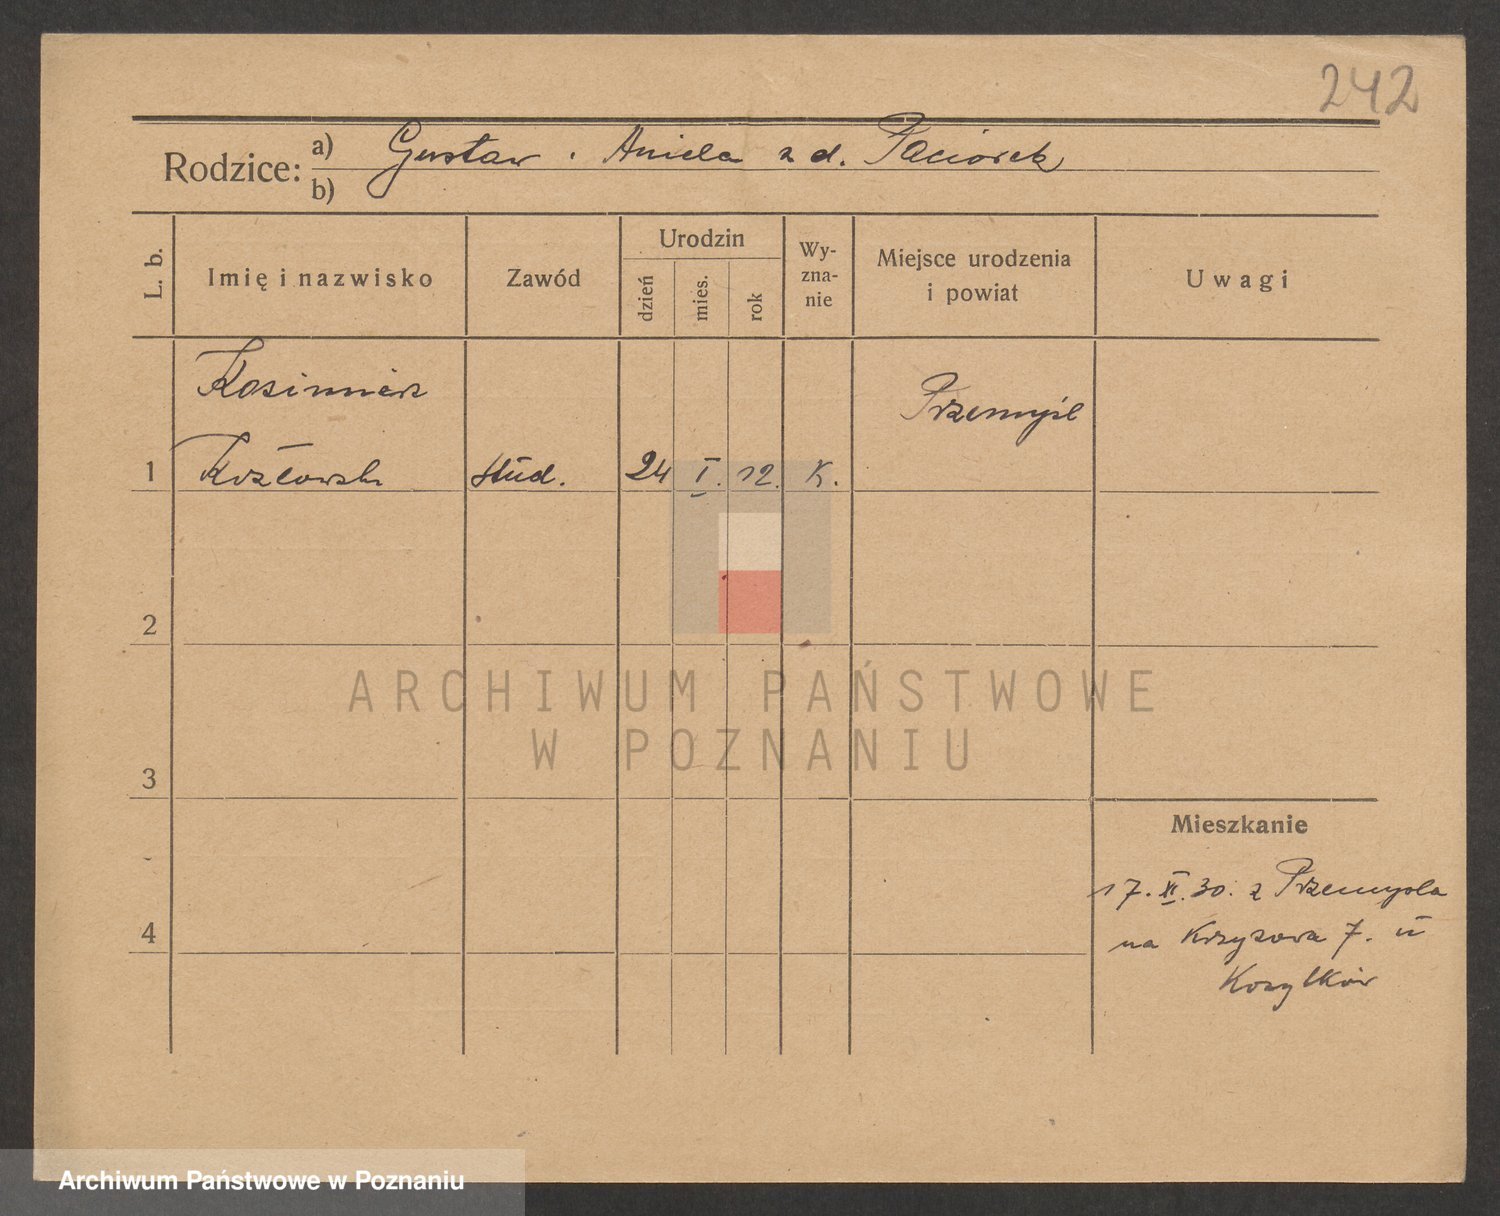 242
Rodzice: a) Gustaw i Aniela z d. Paciorek
b)
L. b. Imię i nazwisko Zawód Urodzin dzień mies. rok Wy-zna-nie Miejsce urodzenia i powiat Uwagi
Kazimierz Przemyśl
1 Kozłowski stud. 24 I. 12. K.
2
ARCHIWUM PAŃSTWOWE
W POZNANIU
3
Mieszkanie
17. XI. 30. z Przemyśla
4 na Krzyżowa 7. u
Archiwum Państwowe w Poznaniu